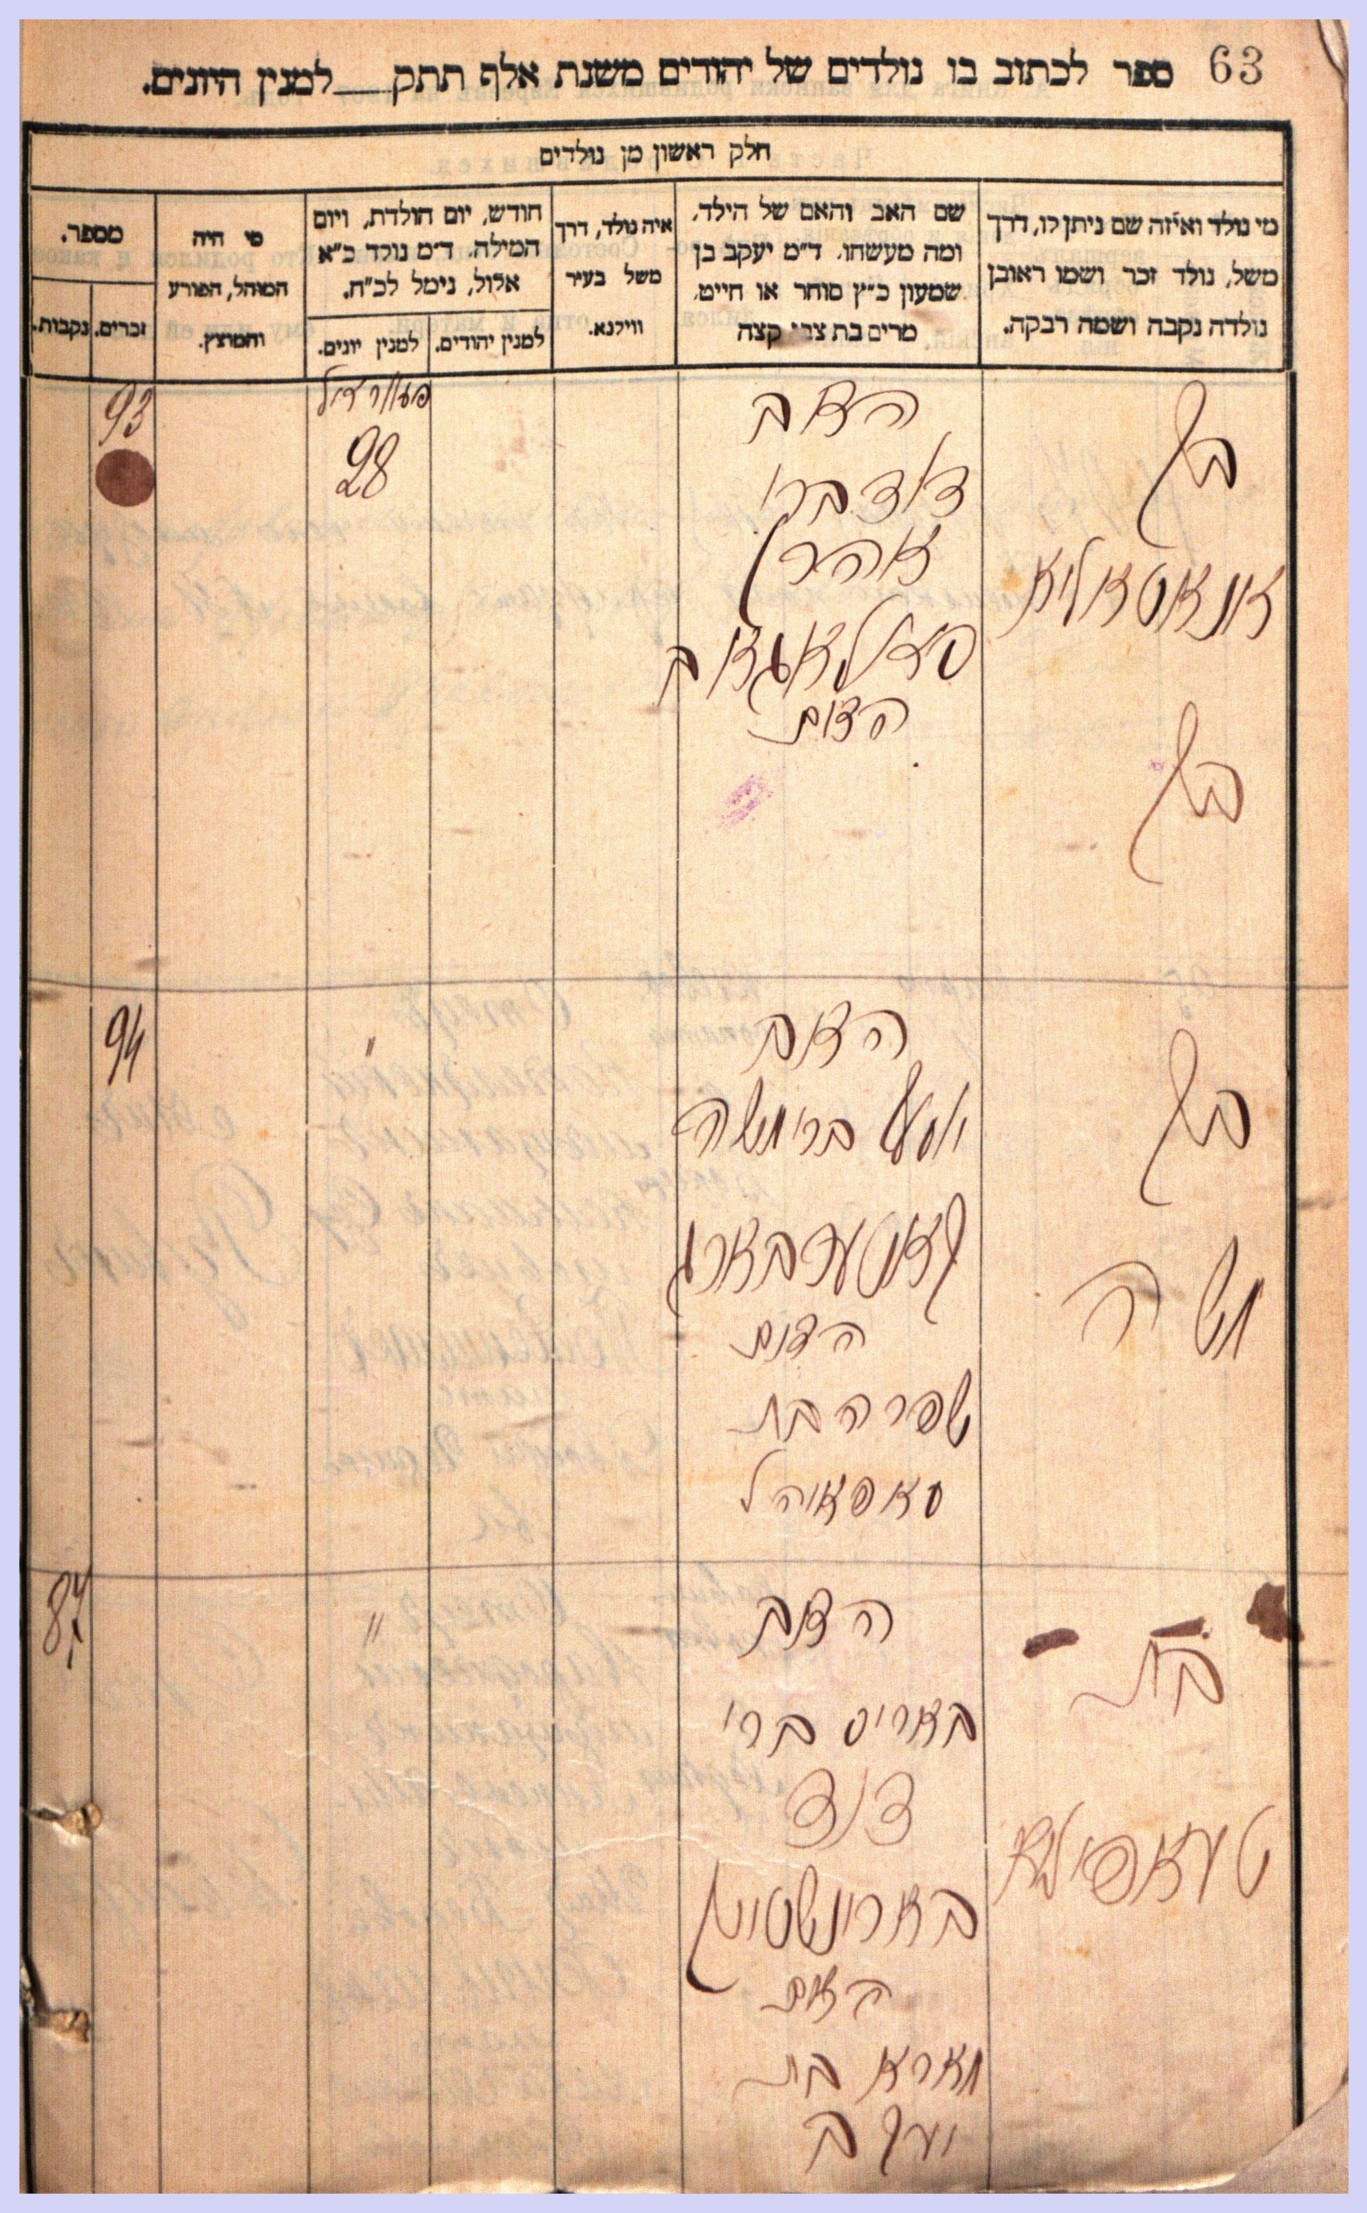 63
ספר לכתוב בו נולדים של יהודים משנת אלף תתק___למנין היונים.
חלק ראשון מן נולדים
מי נולד ואיזה שם ניתן לו, דרך
משל, נולד זכר ושמו ראובן
נולדה נקבה ושמה רבקה.
שם האב והאם של הילד,
ומה מעשהו. ד״מ יעקב בן
שמעון כ״ץ סוחר או חייט,
מרים בת צבי קצה
איה נולד, דרך
משל בעיר
ווילנא.
חודש, יום הולדת, ויום
המילה. ד״מ נולד כ״א
אלול, נימל לכ״ח.
למנין יהודים.
למנין יונים.
מי היה
המוהל, הפורע
והמוצץ.
מספר.
זכרים.
נקבות.
בן
אנאטאליא
בן
האב
דוד ברי
אהרן
האם
28
93
בן
משה
האב
יוסף ברי משה
גאטעסבארג
האם
שפרה בת
"
94
בת
האב
באריס ברי
דוד
בארינשטיין
האם
מארא בת
יעקב
"
87